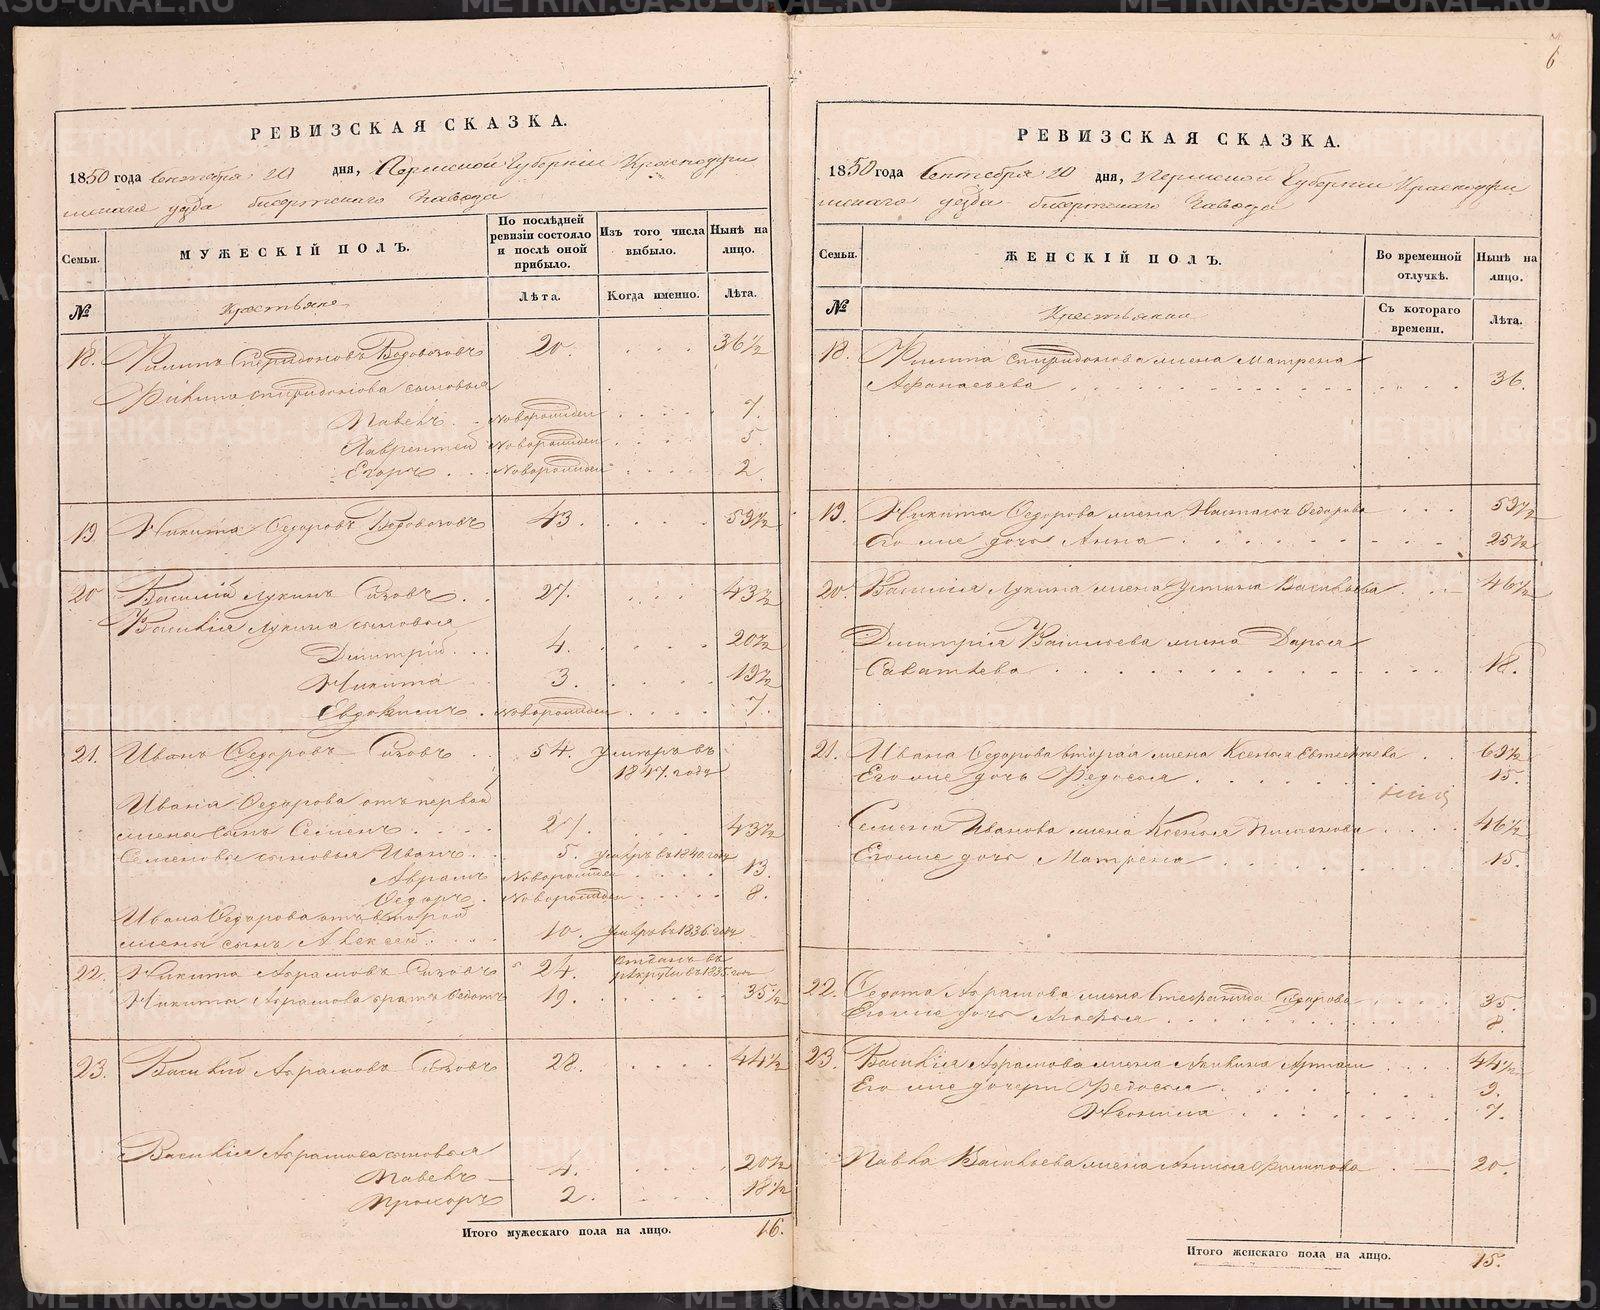 6
РЕВИЗСКАЯ СКАЗКА.
1850 года Сентября 20 дня, Пермской Губерніи Красноуфи
мскаго уезда бисертскаго Завода
Семьи.
МУЖЕСКІЙ ПОЛЪ.
По послѣдней ревизіи состояло и послѣ оной прибыло.
Изъ того числа выбыло.
Нынѣ на лицо.
№
Крестьяне
Лѣта.
Когда именно.
Лѣта.
18. Филипъ Спиридоновъ 20. 36 1/2
Филипа спиридонова сыновья
Павелъ Новорожден 7.
Лаврентей Новорожден 5.
Егоръ Новорожден 2
19 Никита Федоровъ 43. 59 1/2
20 Василій Лукинъ 27. 43 1/2
Василія Лукина сыновья
Дмитрій 4. 20 1/2
Никита 3. 19 1/2
Евдокимъ Новорожден 7.
21. Иванъ Федоровъ 54. умеръ въ
1847 году
Ивана Федорова отъ первой
жены сынъ Семенъ 27. 43 1/2
Семеновы сыновья Иванъ 5. умеръ въ 1840 году
Авраамъ Новорожден 13.
Федоръ Новорожден 8.
Ивана Федорова отъ второй
жены сынъ Алексей 10. умеръ въ 1836 году
22. Никита Абрамовъ 24. отданъ въ
рекруты въ 1835 году
Никиты Абрамова братъ Федотъ 19. 35 1/2
23. Василій Абрамовъ 28. 44 1/2
Василія Абрамова сыновья
Павелъ 4. 20 1/2
Прохоръ 2. 18 1/2
Итого мужескаго пола на лицо. 16.
РЕВИЗСКАЯ СКАЗКА.
1850 года Сентября 20 дня, Пермской Губерніи Красноуфи
мскаго уезда бисертскаго Завода
Семьи.
ЖЕНСКІЙ ПОЛЪ.
Во временной отлучкѣ.
Нынѣ на лицо.
№
Крестьянки
Съ котораго времени.
Лѣта.
18. Филипа спиридонова жена Матрена
Афанасьева 36.
19. Никиты Федорова жена Настасья Федорова 59 1/2
Его же дочь Анна 25 1/2
20 Василія Лукина жена Устинья Васильева 46 1/2
Дмитрія Васильева жена Дарья
Саватеева 18.
21. Ивана Федорова вторая жена Ксенья 69 1/2
Его же дочь Федосья 15.
Семена Иванова жена Ксенья 46 1/2
Его же дочь Матрена 15.
22. Федота Абрамова жена Стефанида Федорова 35.
Его же дочь Агафья 8.
23. Василія Абрамова жена Акилина 44 1/2
Его же дочери Федосья 9.
Неонила 7.
Павла Васильева жена Филипова 20.
Итого женскаго пола на лицо. 15.
METRIKI.GASO-URAL.RU